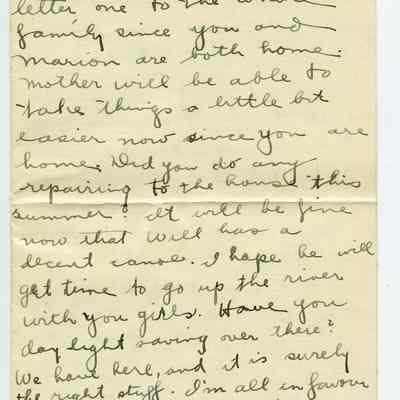 letter one to the whole
family since you and
Marion are both home.
Mother will be able to
take things a little bit
easier now since you are
home. Did you do any
repairing to the house this
summer? It will be fine
now that Will has a
decent canoe. I hope he will
get time to go up the river
with you girls. Have you
day light saving over there?
We have here, and it is surely
the right stuff. I'm all in favour